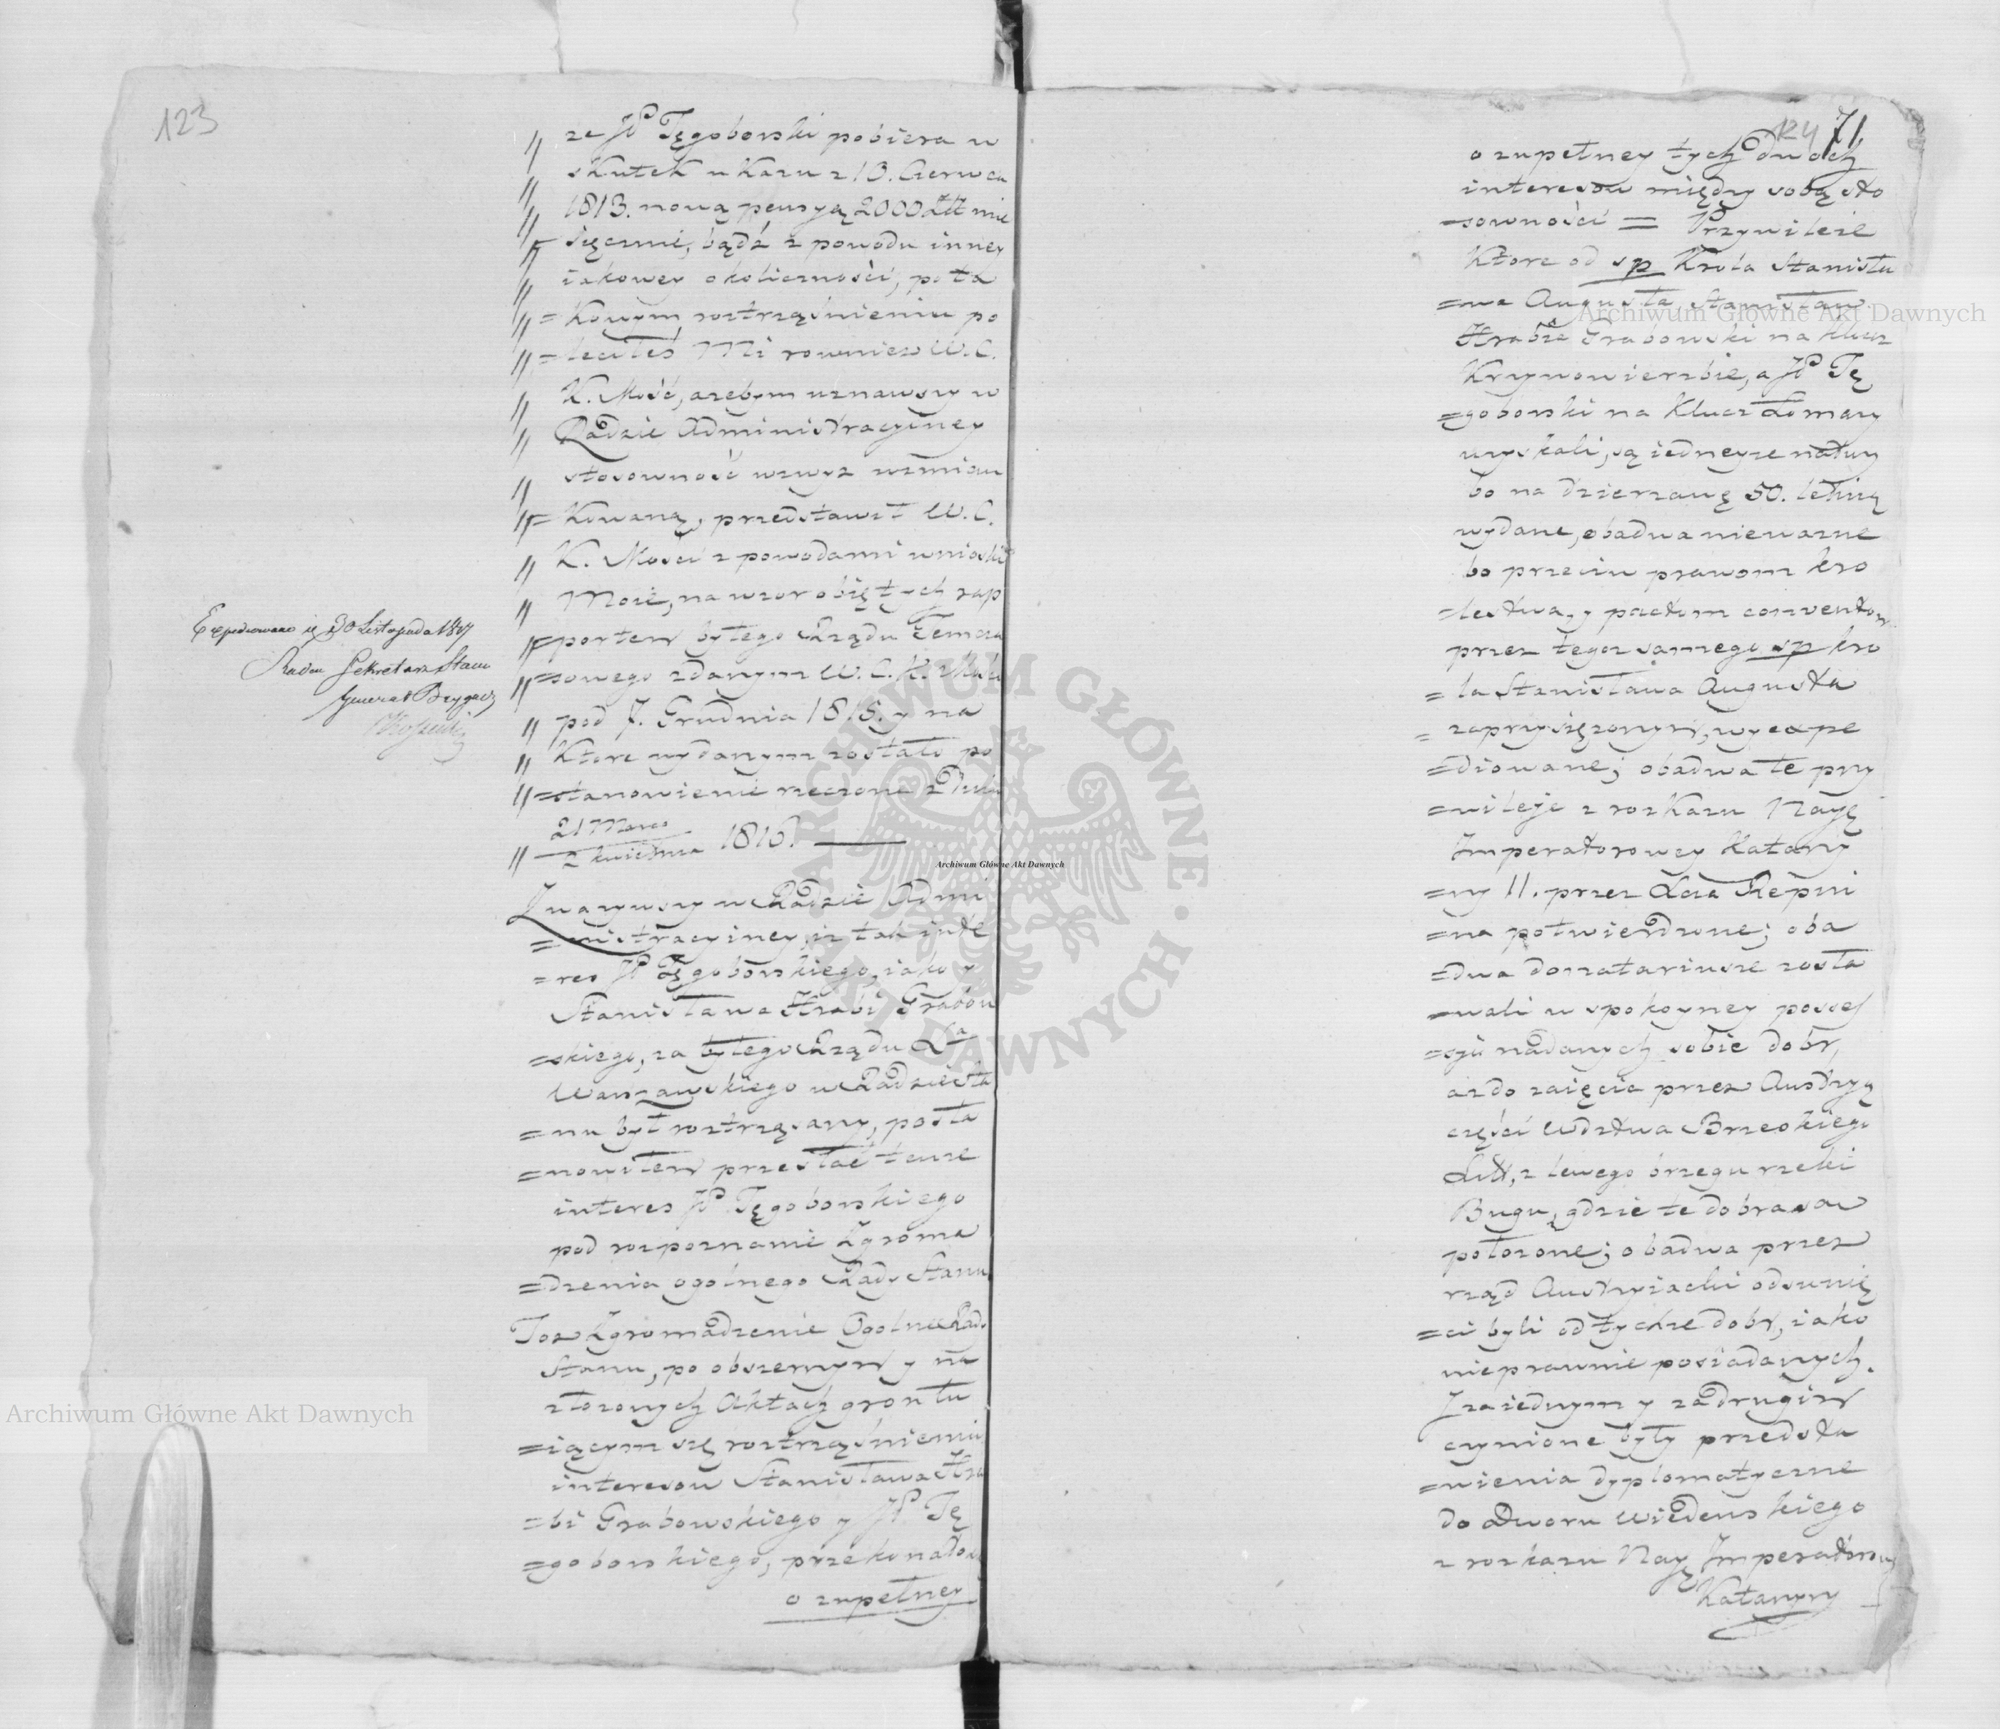 123
" że JP Tęgoborski pobiera w
" skutek ukazu z 13. Czerwca
" 1813. nową pensyą 2000 Złł mie
" sięcznie, bądź z powodu inney
" iakowey okoliczności, po ta
" =kowym roztrząśnieniu po
" =leciłeś Mi rownież W. C.
" K. Mość, ażebym uznawszy w
" Radzie Administracyiney
" stosowność wzwyż wzmian
" =kowaną, przedstawił W. C.
" K. Mości z powodami wnioski
" Moie, na wzor obiętych rap
" =portem byłego Rządu Temcza
" =sowego zdanym W. C. K. Mości
" pod 7. Grudnia 1815. y na
" ktore wydanym zostało po
" =stanowienie rzeczone z Dnia
" 21 Marca
2 Kwietnia 1816. —
Zważywszy w Radzie Admi
=nistracyiney, iż tak inte
=res JP Tęgoborskiego, iako y
Stanisława Hrabi Grabow
=skiego, za byłego Rządu Xa
Warszawskiego w Radzie Sta
=nu był roztrząsany, posta
=nowiłem przesłać tenże
interes JP Tęgoborskiego
pod rozpoznanie Zgroma
=dzenia ogolnego Rady Stanu
Toż Zgromadzenie Ogolne Rady
Stanu, po obszernym y na
złożonych Aktach gruntu
=iącym się roztrząśnieniu
interesow Stanisława Hra
=bi Grabowskiego y JP. Tę
=goborskiego, przekonało się
o zupełney
Expediowano 30 Listopada 1817
Radca Sekretarz Stanu
Generał Brygady
Kossecki
124 71
o zupełney tych dwoch
interesow między sobą sto
=sowności = Przywileie
ktore od sp Krola Stanisła
=wa Augusta Stanisław
Hrabia Grabowski na klucz
Krzywowierzbie, a JP Tę
=goborski na Klucz Łomazy
uzyskali, są iedneyże natury
bo na dzierżawę 50. letnią
wydane, obadwa nieważne
bo przeciw prawom kro
=lestwa, y pactom conventom
przez tegoż samego sp kro
=la Stanisława Augusta
= zaprzysiężonym, wyexpe
=diowane; obadwa te przy
=wileje z rozkazu Nayę
Imperatorowey Katarzy
=ny II. przez Xcia Repni
=na potwierdzone; oba
=dwa donatariusze zosta
=wali w spokoyney posses
=syi nadanych sobie dobr,
aż do zaięcia przez Austryą
części Wdztwa Brzeskiego
Litt, z lewego brzegu rzeki
Bugu, gdzie te dobra są
położone; obadwa przez
rząd Austryiacki odsunię
=ci byli od tychże dobr, iako
nieprawnie posiadanych.
Za iednym y za drugim
czynione były przedsta
=wienia dyplomatyczne
do Dworu Wiedenskiego
z rozkazu Nayę Imperatorowey
Katarzyny
Archiwum Główne Akt Dawnych
Archiwum Główne Akt Dawnych
Archiwum Główne Akt Dawnych
ARCHIWUM GŁÓWNE · AKT DAWNYCH ·